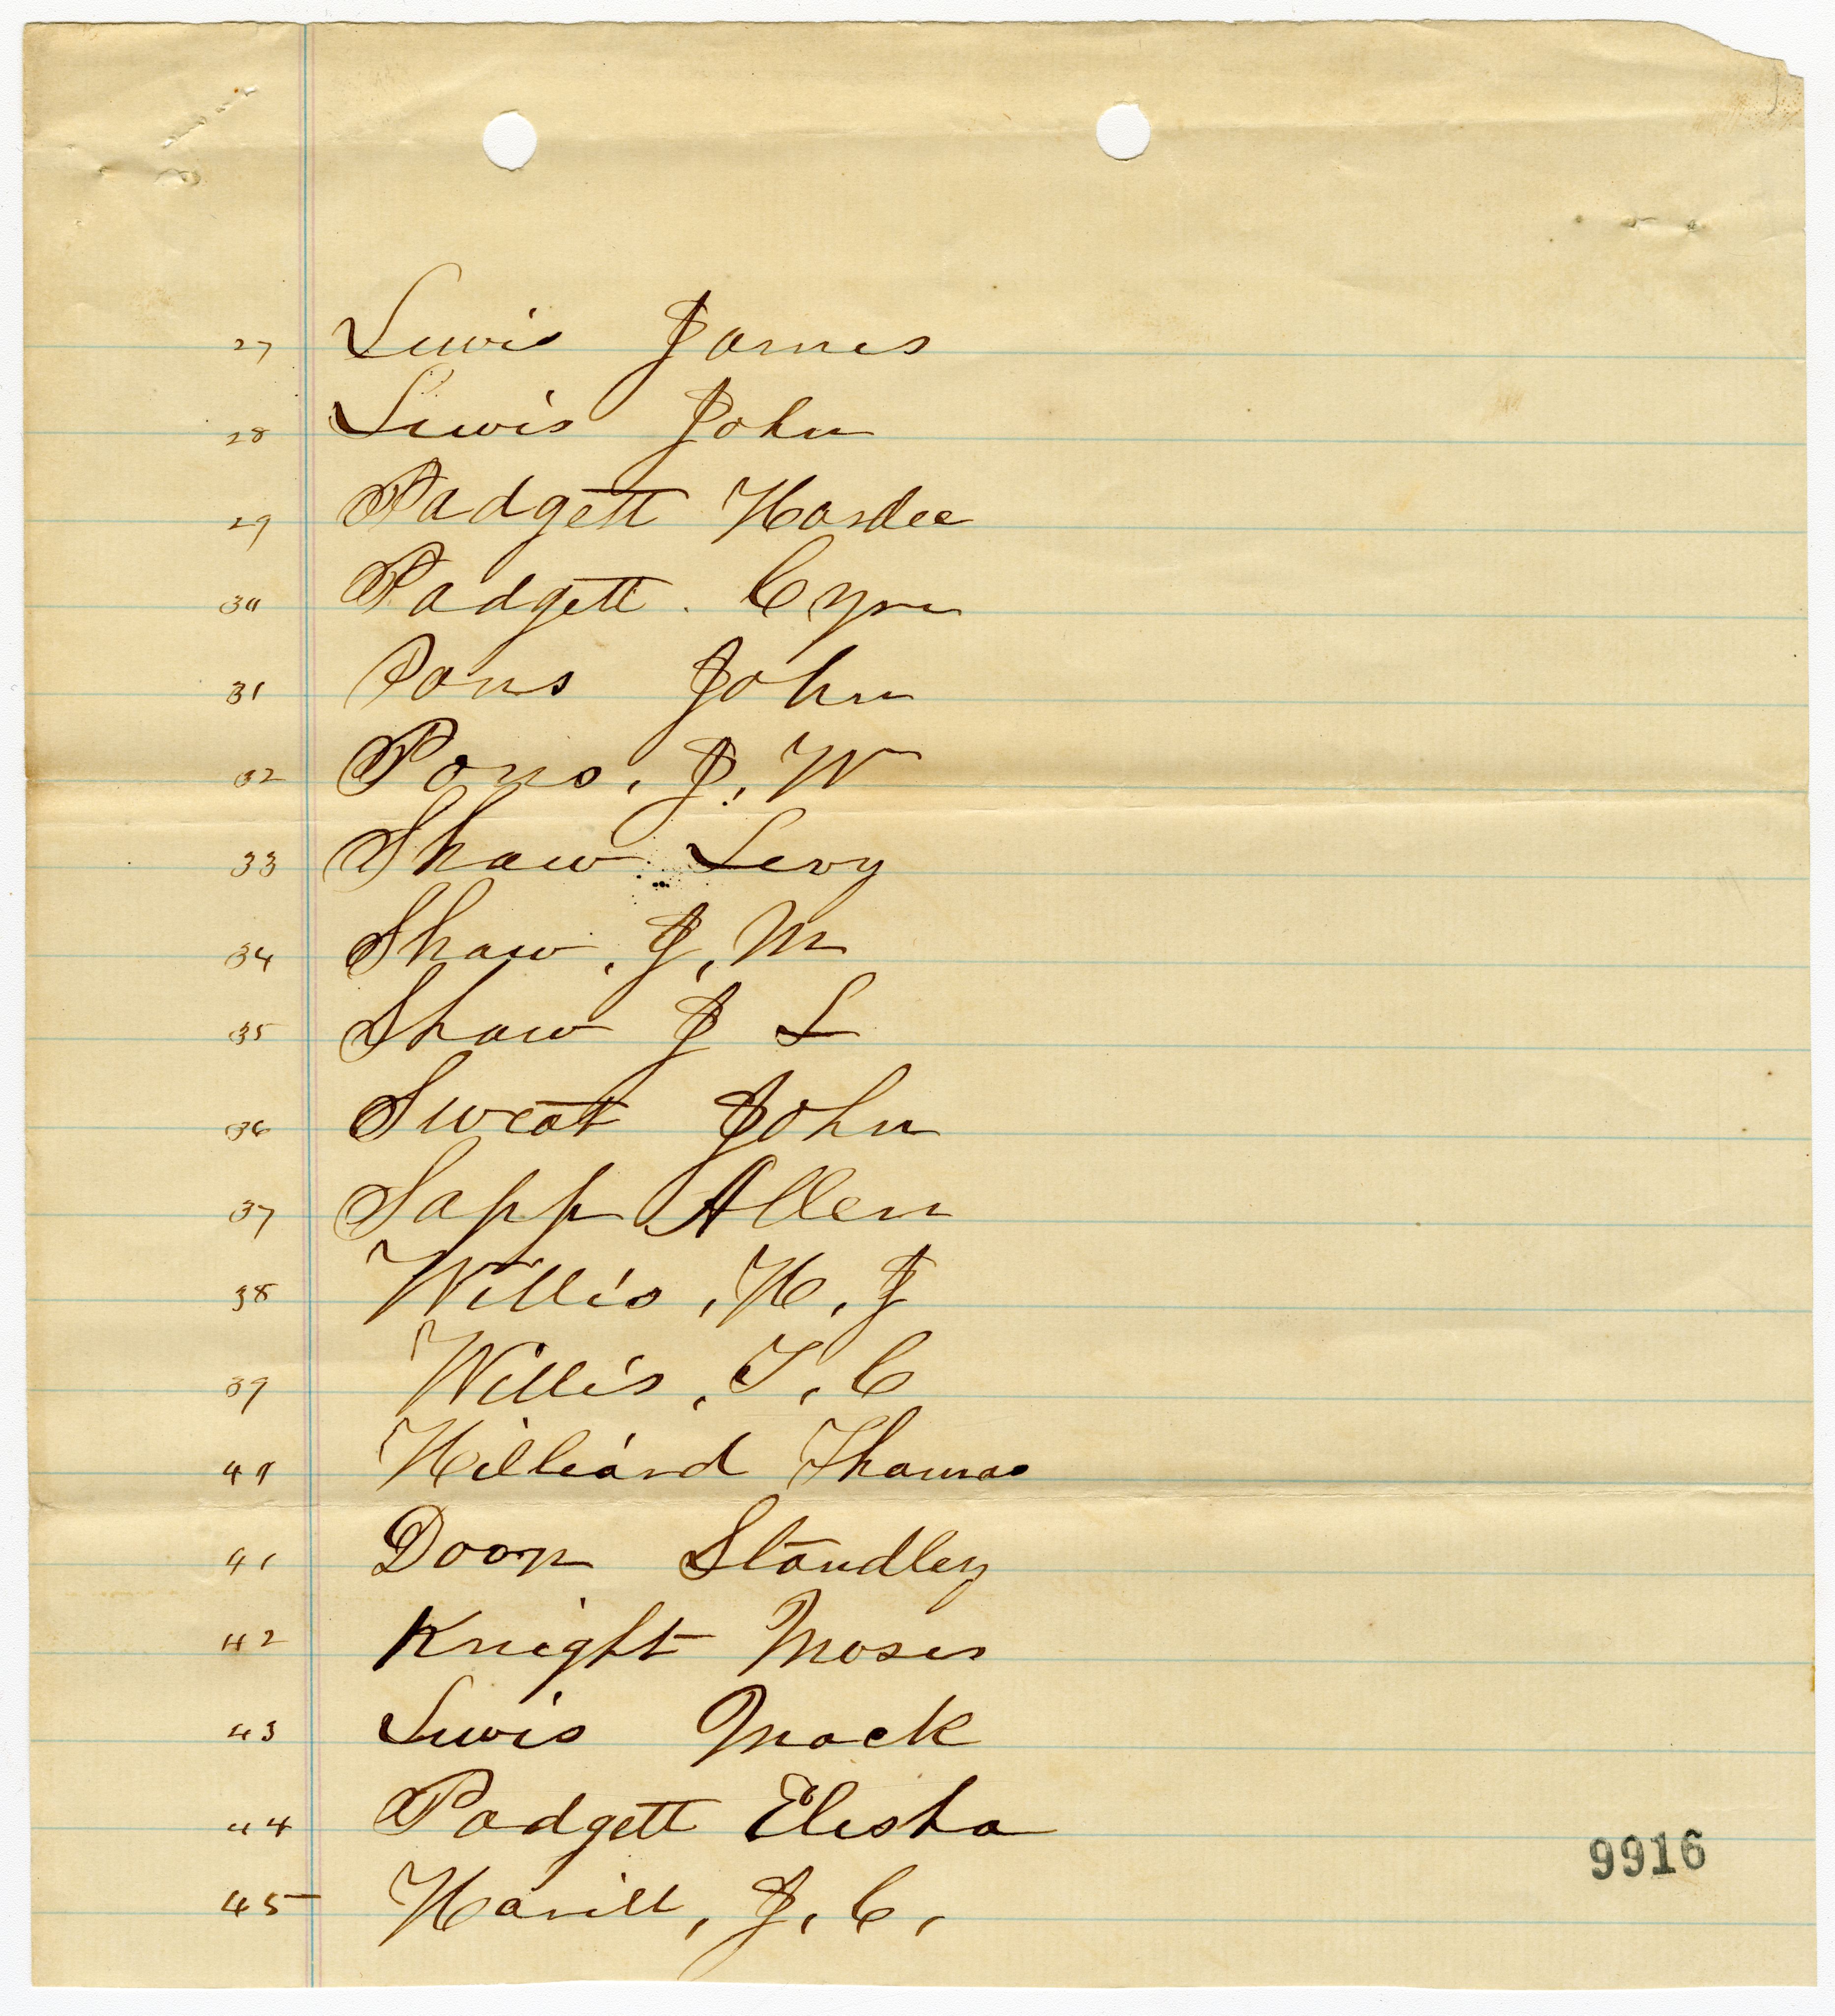 27 Lewis James
28 Lewis John
29 Padgett Hardee
30 Padgett. Cyru
31 Pons John
32 Pons, J, W
33 Shaw Levy
34 Shaw, J, M
35 Shaw J L
36 Sweat John
37 Sapp Allen
38 Willis, H, J
39 Willis, T, C
40 Hilliard Thomas
41 Standley
42 Knight Moses
43 Lewis Mack
44 Padgett Elisha
45 J, C,
9916